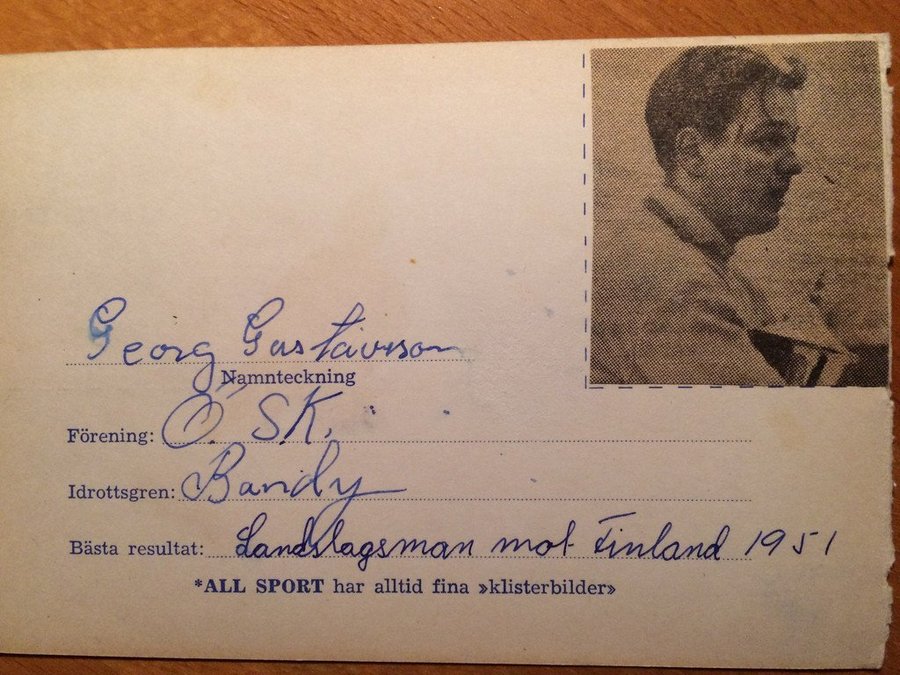 Georg Gustavsson
Namnteckning
Förening: Ö. S.K.
Idrottsgren: Bandy
Bästa resultat: Landslagsman mot Finland 1951
*ALL SPORT har alltid fina »klisterbilder»